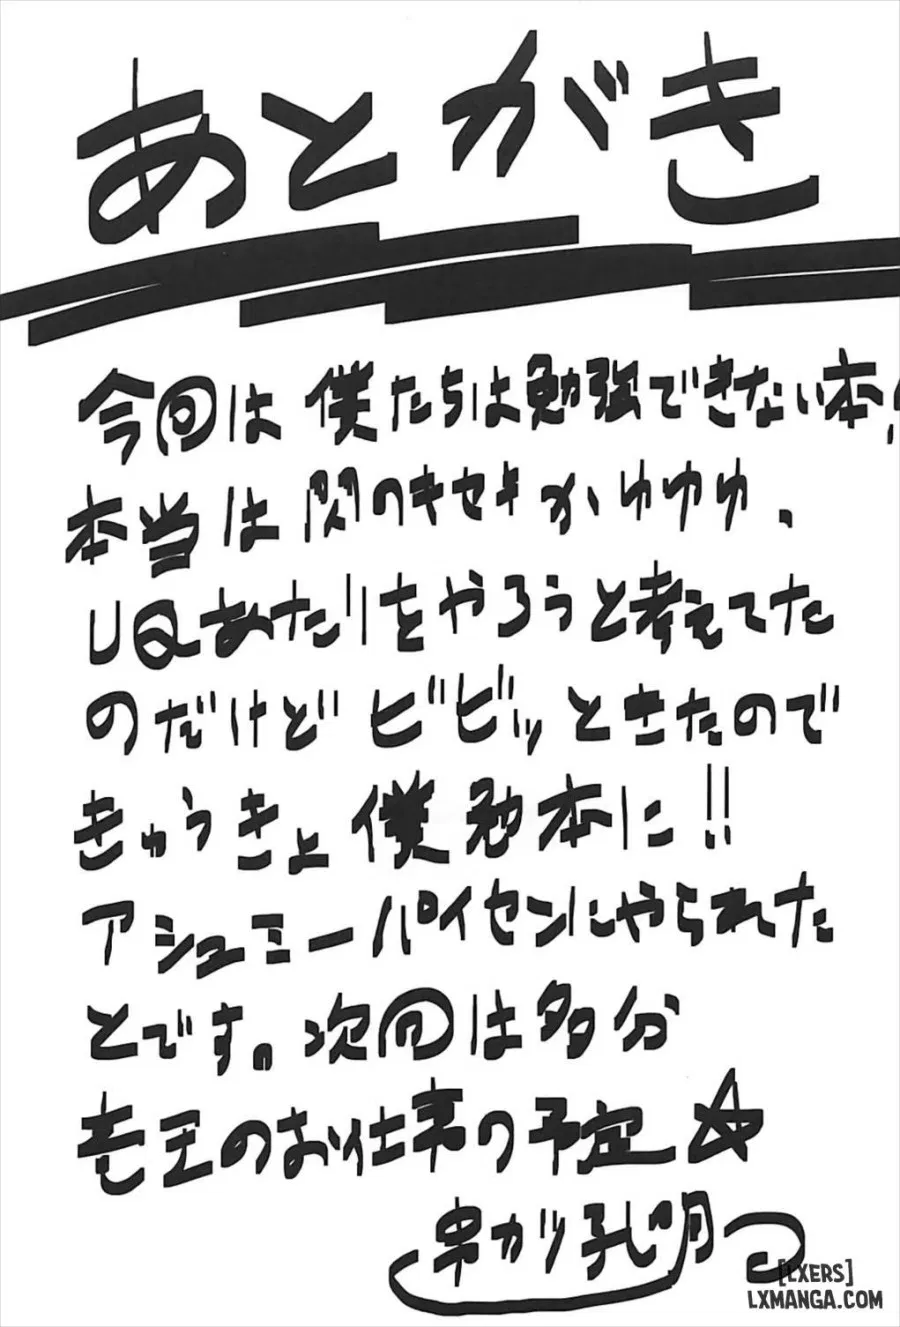 あとがき
今回は僕たちは勉強できない本!
本当は閃のキセキかゆゆゆ、
UQあたりをやろうと考えてた
のだけどビビッときたので
きゅうきょ僕勉本に!!
アシュミーパイセンにやられた
とです。次回は多分
竜王のお仕事の予定☆
串カツ孔明
[LXERS]
LXMANGA.COM